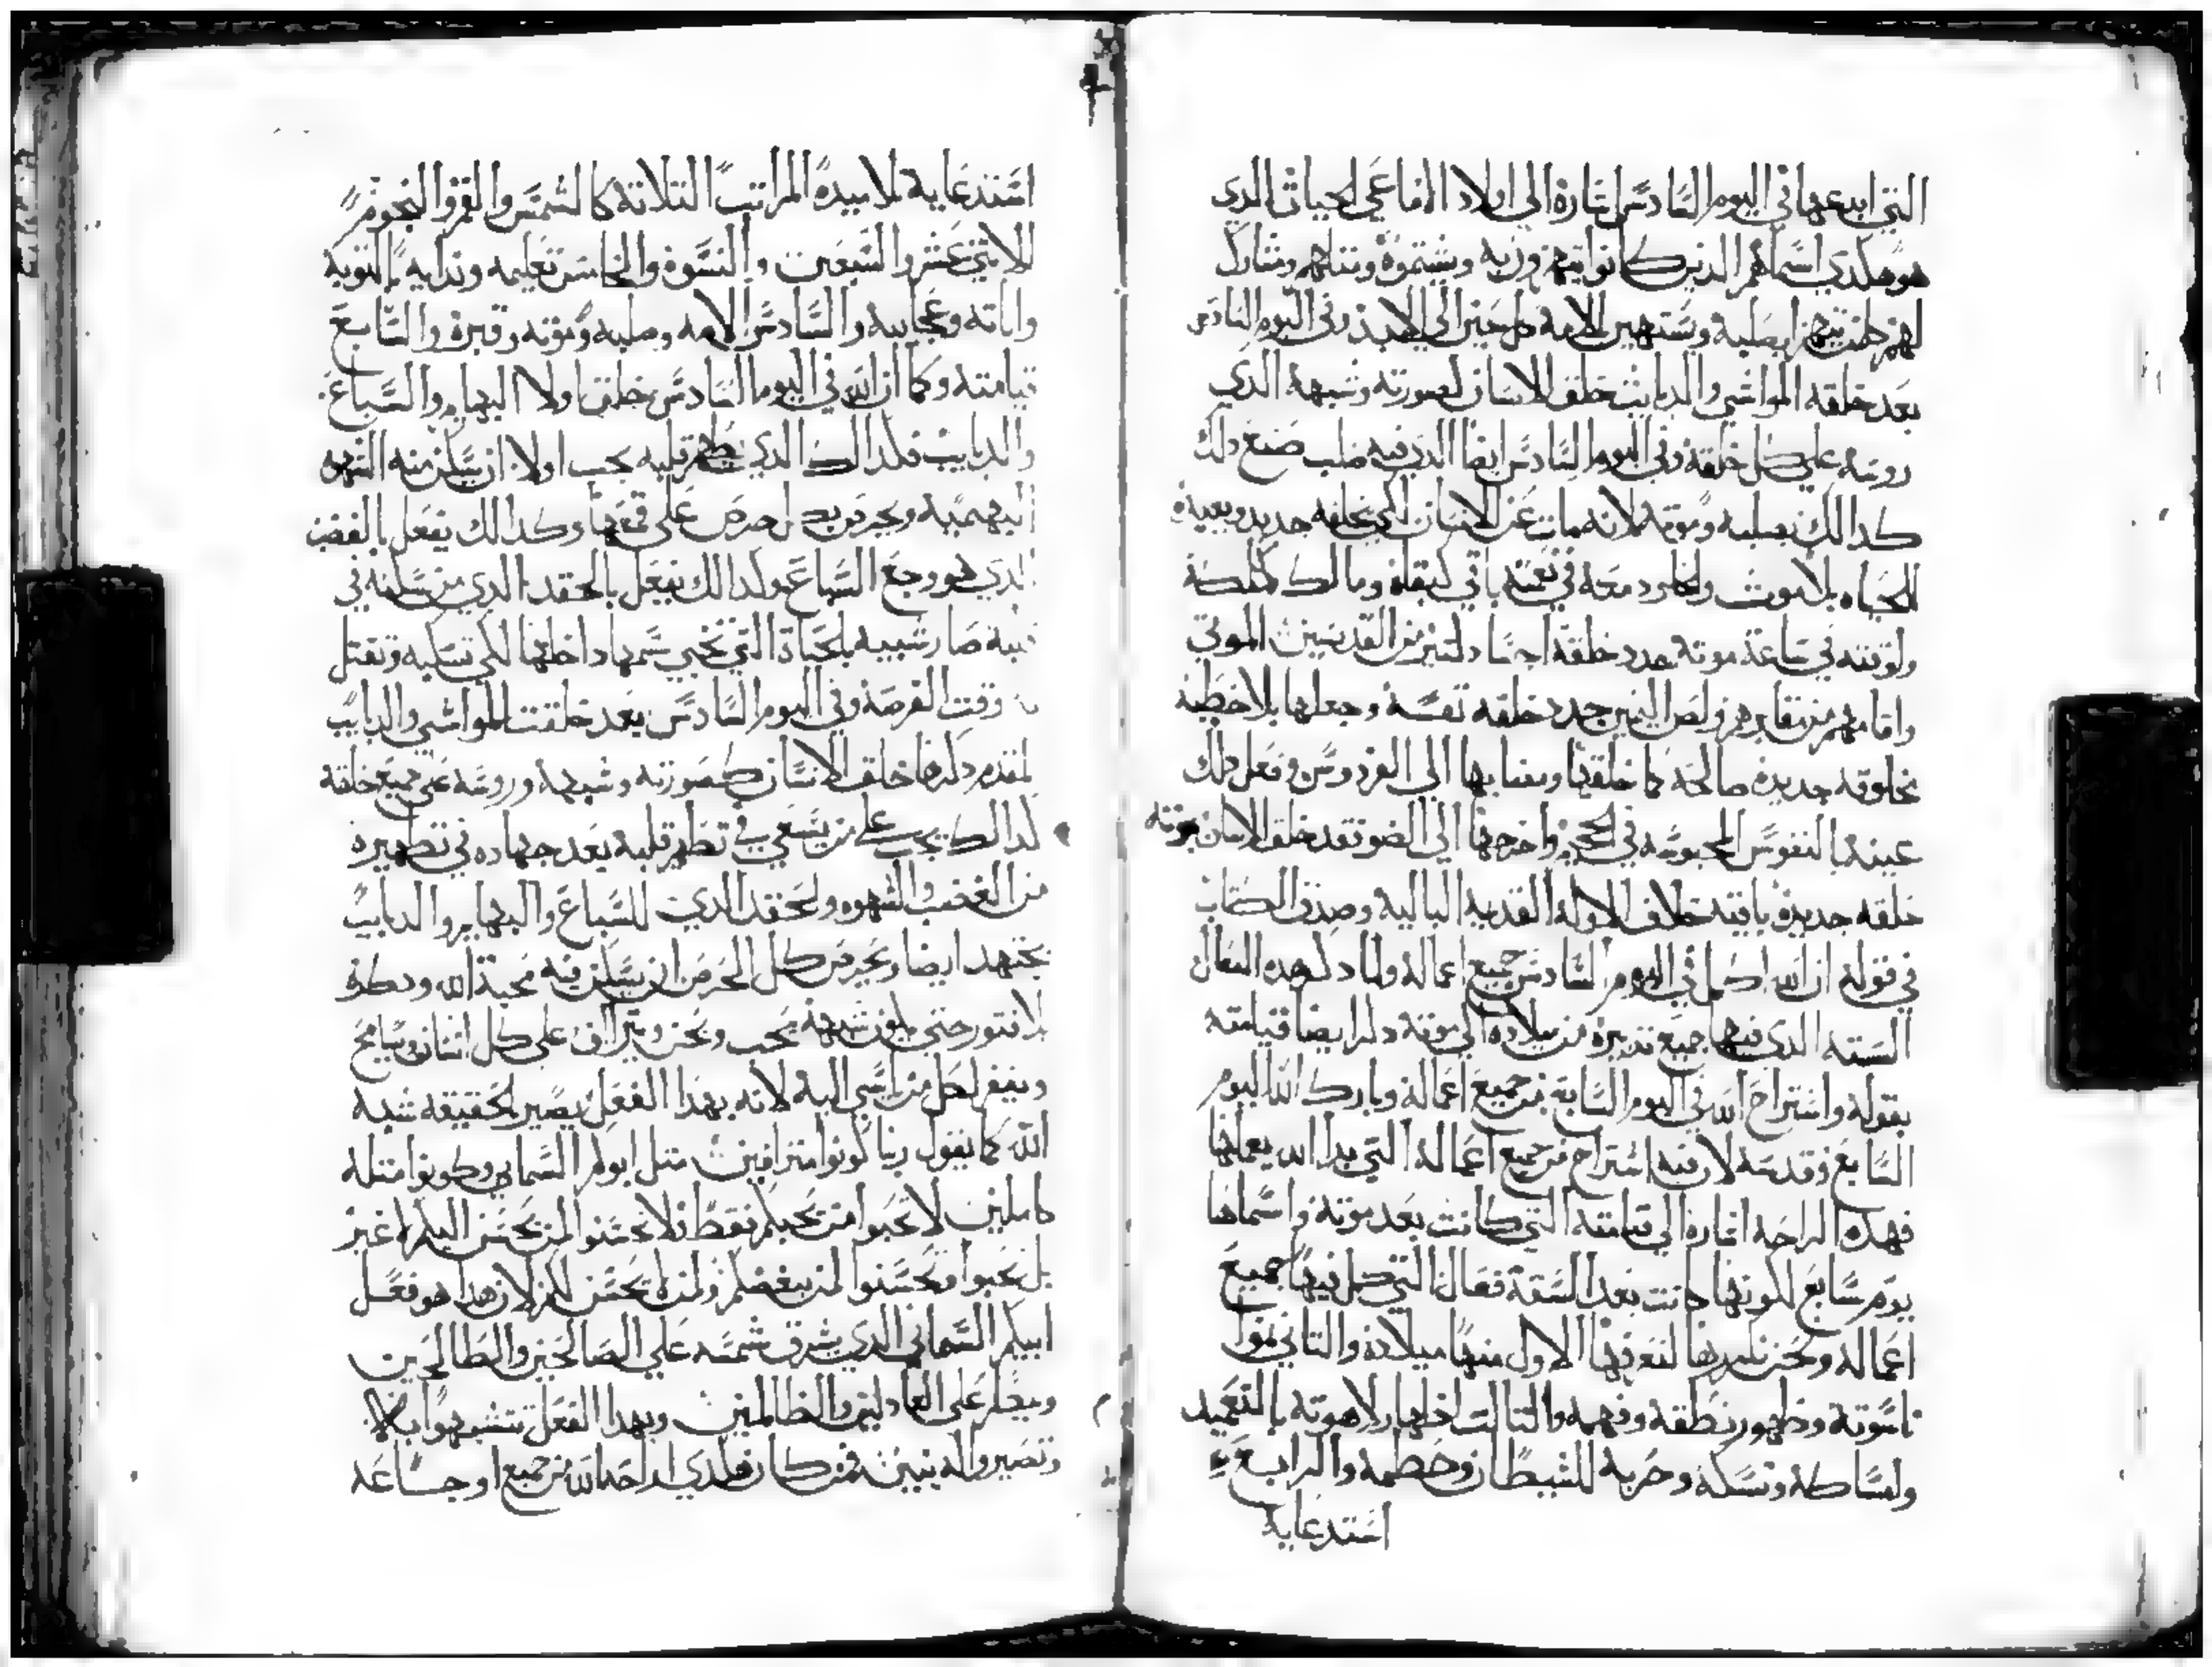 التي ابدعها في اليوم السادس اشارة الي اولاد الافاعي الحيات الدي
هو هكدي اسماهم الدين كانوا وزيه ويشتموة ومثلهم وتشارك
لهم بصلبه الامة كل حين الي الابد وفي اليوم السادس
بعد خلقه المواشي والدبايب خلق الانسان لصورته وشبهه الدي
روسه علي كل خلقة وفي اليوم السادس ايضا الدي فيه صلب صنع دلك
كدالك بصلبه وموته لانه مات عن الانسان لكي يخلقه جديد ويعيده
للحياه بلا موث معه في باقي
ولوقته في ساعة موته جدد خلقة اجساد كتير من القديسين الموتي
واقامهم من مقابرهم ولص اليمين جدد خلقه نفسة وجعلها بلا خطية
مخلوقه جديدة صالحه كما خلقها ومضا بها الي الفردوس وفعل دلك
عينه بالنفوس المحبوسه في الجحيم واخرجها الي الضو فقد خلق الانسان بموته
خلقه جديدة باقيه خلاف الاولة القديمه الباليه وصدق الكتاب
في قوله ان الله اكمل في اليوم السادس جميع اعماله ولما دكر هده الفعال
السته الدي فيها جميع تدبيرة من ميلاده الي موته دكر ايضا قيامته
بقوله واستراح الله في اليوم السابع من جميع اعماله وبارك الله اليوم
السابع وقدسه لان فيه استراح من جميع اعماله التي بدا الله يعملها
فهده الراحه اشارة الي قيامته التي كانت بعد موته واسماها
يوم سابع لكونها كانت بعد الستة فعال التي كمل فيها جميع
اعماله ونحن نكررها لنعرفها الاول منها ميلاده والتاني نموا
ناسوته وظهور نطقه وفهمه والتالت اظهار لاهوته بالتعميد
وامساكه ونسكه وحربه للشيطان وحطمه والرابع
استدعايه
استدعايه تلاميدة المراتب التلاتة كالشمس والقمر والنجوم
الاتني عشر والسبعين والنسوة والخامس تعليمه وندايه بالتوبه
واياته وعجايبه والسادس الامه وصلبه وموته وقبرة والسابع
قيامته وكما ان الله في اليوم السادس خلق اولا البهايم والسباع
والدبايب فكدالك الدي يطهر قلبه يجب اولا ان يسكن منه الشهوه
البهيميه ويحرص بكل حرص علي قمعها وكدالك يفعل بالغضب
الدي هو وجع السباع وكدالك يفعل بالحقد الدي من سكنه في
قلبة صار شبيه بالحياة التي تخبي سمها داخلها لكي تسكبه وتقتل
به وقت الفرصة وفي اليوم السادس بعد خلقت المواشي والدبايب
المقدم دكرها خلق الانسان كصورته وشبهه وروسه علي جميع خلقه
كدالك يجب علي من يسعي في تطهير قلبه بعد جهاده في تطهيره
من الغضب والشهوه والحقد الدي للسباع والبهايم والدبايب
يجتهد ايضا ويحرص كل الحرص ان يسكن فيه محبة الله ودكره
بلا فتور حتي يكون شبهه يحب ويحن ويتراف علي كل انسان ويسامح
ويغفر لكل من اسي اليه لانه بهدا الفعل يصير بالحقيقه شبه
الله كما يقول ربنا كونوا مترافين متل ابوكم السماي وكونوا متله
كاملين لا تحبوا من يحبكم فقط ولا تحسنوا لمن يحسن اليكم لا غير
بل تحبوا وتحسنوا لمن يبغضكم ولمن لا يحسن لكم لان هدا هو فعل
ابيكم السماي الدي يشرق شمسه علي الصالحين والطالحين
ويمطر علي العادلين والظالمين وبهدا الفعل تتشبهوا بالله
وتصيروا له بنين فمن كان هكدي اراحه الله من جميع اوجساعه